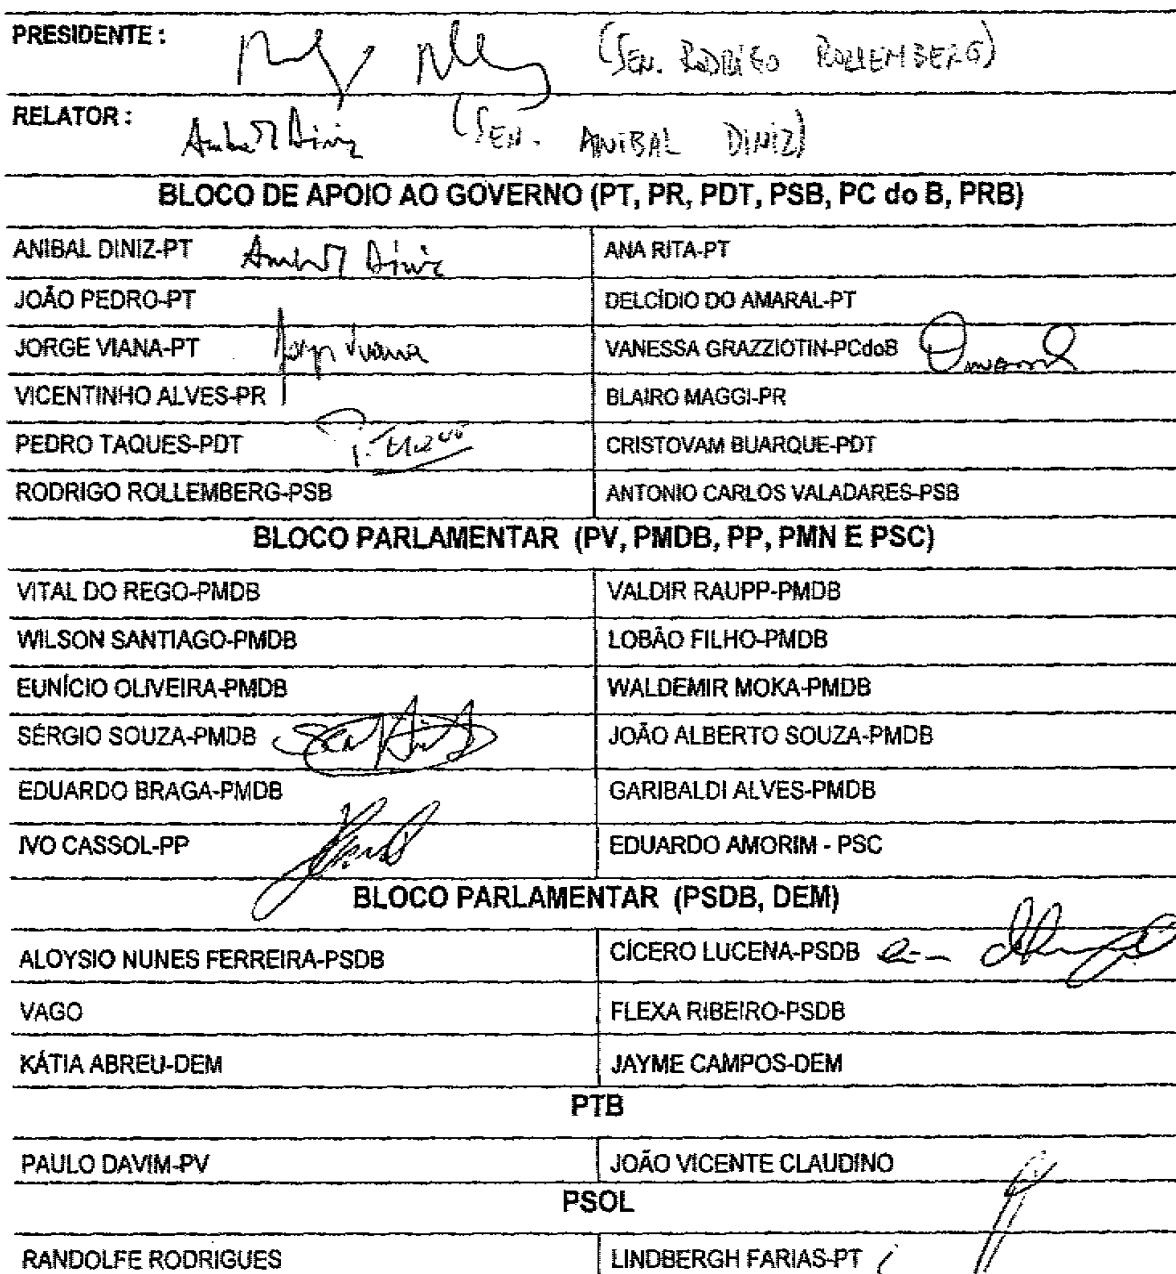 PRESIDENTE : (SEN. RODRIGO ROLLEMBERG)
RELATOR : Anibal Diniz (SEN. ANIBAL DINIZ)
BLOCO DE APOIO AO GOVERNO (PT, PR, PDT, PSB, PC do B, PRB)
ANIBAL DINIZ-PT Anibal Diniz ANA RITA-PT
JOÃO PEDRO-PT DELCÍDIO DO AMARAL-PT
JORGE VIANA-PT Jorge Viana VANESSA GRAZZIOTIN-PCdoB
VICENTINHO ALVES-PR BLAIRO MAGGI-PR
PEDRO TAQUES-PDT CRISTOVAM BUARQUE-PDT
RODRIGO ROLLEMBERG-PSB ANTONIO CARLOS VALADARES-PSB
BLOCO PARLAMENTAR (PV, PMDB, PP, PMN E PSC)
VITAL DO REGO-PMDB VALDIR RAUPP-PMDB
WILSON SANTIAGO-PMDB LOBÃO FILHO-PMDB
EUNÍCIO OLIVEIRA-PMDB WALDEMIR MOKA-PMDB
SÉRGIO SOUZA-PMDB JOÃO ALBERTO SOUZA-PMDB
EDUARDO BRAGA-PMDB GARIBALDI ALVES-PMDB
IVO CASSOL-PP EDUARDO AMORIM - PSC
BLOCO PARLAMENTAR (PSDB, DEM)
ALOYSIO NUNES FERREIRA-PSDB CÍCERO LUCENA-PSDB
VAGO FLEXA RIBEIRO-PSDB
KÁTIA ABREU-DEM JAYME CAMPOS-DEM
PTB
PAULO DAVIM-PV JOÃO VICENTE CLAUDINO
PSOL
RANDOLFE RODRIGUES LINDBERGH FARIAS-PT